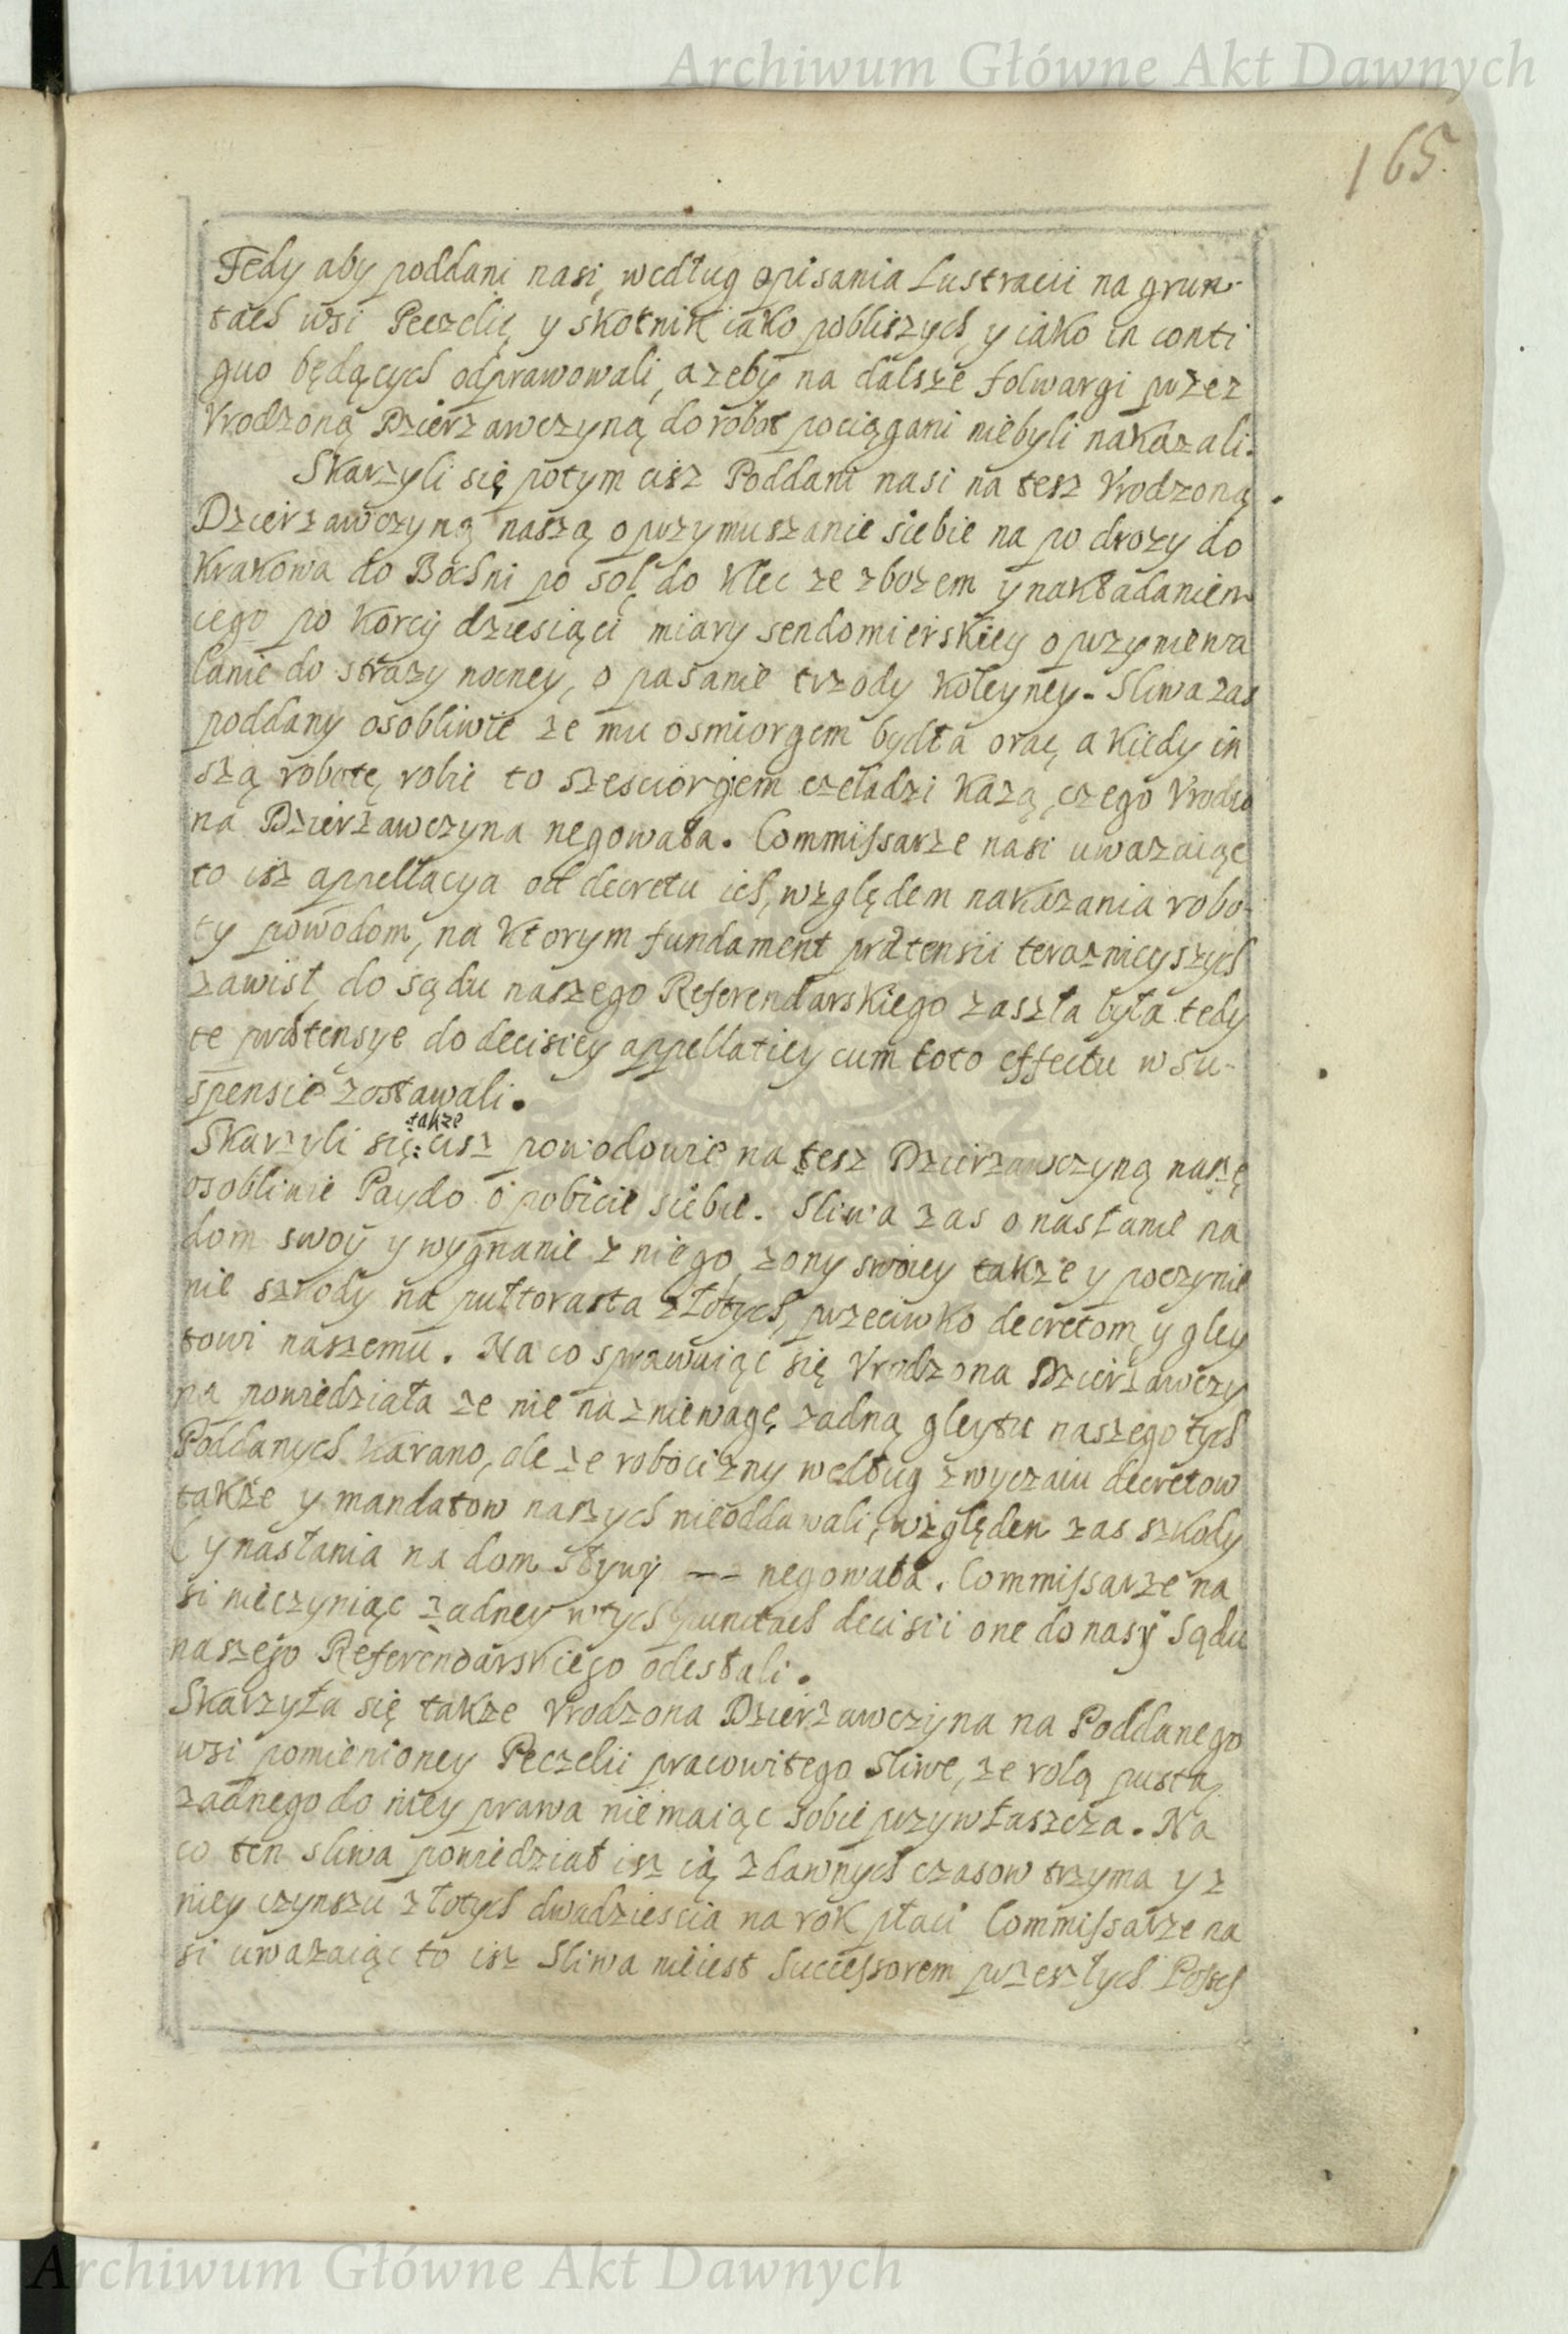 Archiwum Główne Akt Dawnych
165.
Tedy aby poddani nasi, według opisania Lustracii na grun-
tach wsi Peczelic, y skotnik iako pobliszych, y iako in conti
guo będących odprawowali, a zeby na dalsze folwargi przez
Vrodzoną Dzierzawczyną do robot pociągani niebyli nakazali.
Skarzyli się potym cisz Poddani nasi na tesz Vrodzoną
Dzierzawczyną naszą o przymuszanie siebie na po drozy do
Krakowa do Bochni po sol, do Klec ze zbozem y nakładaniem
iego po Korcy dziesiąci miary sendomierskiey o przyniewa
lanie do strazy nocney, o pasanie trzody koleyney - Sliwa zas
poddany osobliwie ze mu osmiorgem bydła orac, a kiedy in
szą robotę robic to szesciorgiem czeladzi kazą, czego Vrodzo
na Dzierzawczyna negowała. Commissarze nasi uwazaiąc
to isz appellacya od decretu ich, względem nakazania robo-
ty powodom, na ktorym fundament prætensii teraznieyszych
zawisł, do sądu naszego Referendarskiego zaszła była tedy
te prætensye do decisiey appellatiey cum toto effectu w su-
spensie zostawali.
takze
Skarzyli się: cisz powodowie na tesz Dzierzawczyną naszę
osobliwie Paydo o pobicie siebie. Sliwa zas o nasłanie na
dom swoy y wygnanie z niego zony swoiey także y poczynie
nie szkody na pułtorasta złotych, przeciwko decretom y gley
towi naszemu. Na co sprawuiąc się Vrodzona Dzierzawczy
na powiedziała ze nie na zniewagę zadną gleytu naszego tych
Poddanych karano, ale ze robocizny według zwyczaiu decretow
także y mandatow naszych nieoddawali, względem zas szkody
y nasłania na dom Slywy -- negowała. Commissarze na
si nieczyniąc zadney w tych punctach decisii one do nasy Sądu
naszego Referendarskiego odesłali.
Skarzyła się takze Vrodzona Dzierzawczyna na Poddanego
wsi pomienioney Peczelii pracowitego Sliwe, ze rolą pustą,
zadnego do niey prawa niemaiąc sobie przywłaszcza. Na
co ten sliwa powiedział isz ią zdawnych czasow trzyma y z
niey czynszu złotych dwadziescia na rok płaci Commissarze na
si uwazaiąc to isz Sliwa nieiest Successorem przeszłych Possess
Archiwum Główne Akt Dawnych